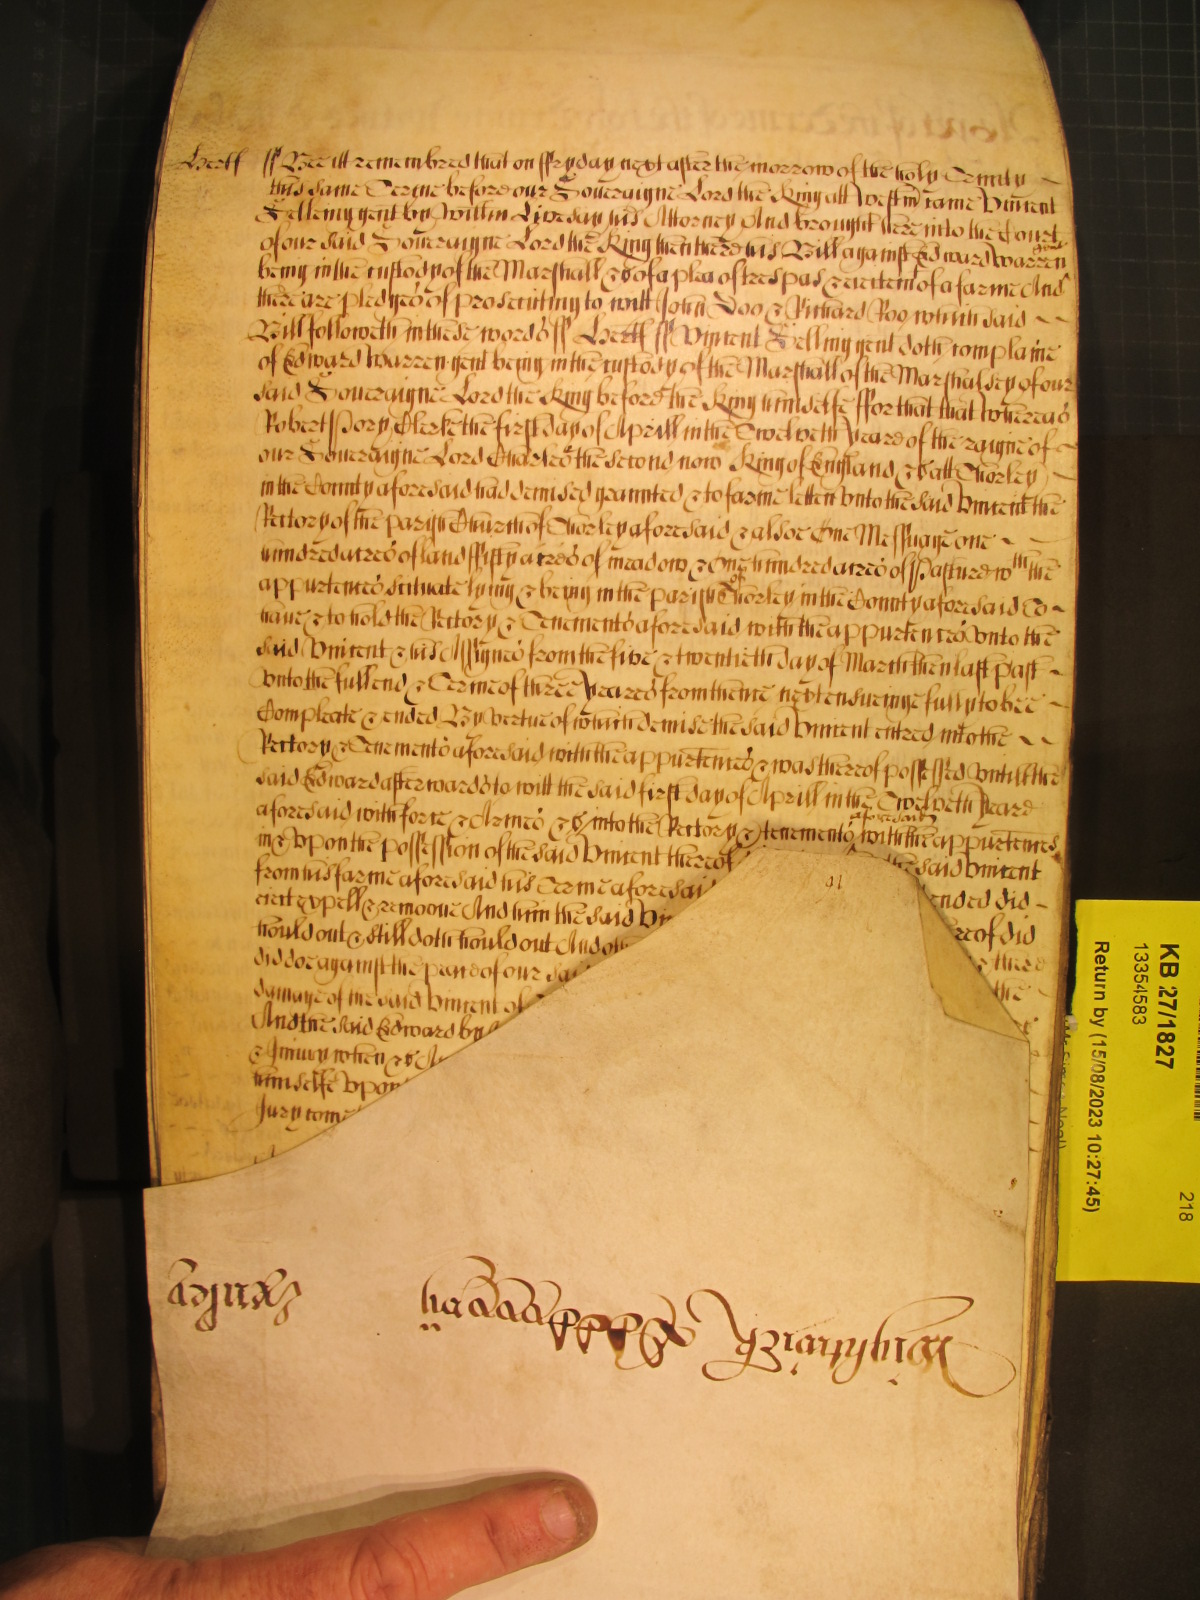 Hertf ss Bee itt remembred that on ffryday next after the morrow of the holy Trinity
this same Terme before our Soveraigne Lord the King att Westm came Vincent
Selling gent by Willm Livesay his Attorney And brought here into the Court
of our said Soveraigne Lord the King then there his Bill against Edward Warren gent
being in the custody of the Marshall &c of a plea of trespas & eiectmt of a farme And
there are pledges of prosecuting to witt John Doo & Richard Roo which said
Bill followeth in these words ss Hertf ss Vincent Selling gent doth complaine
of Edward Warren gent being in the custody of the Marshall of the Marshalsey of our
said Soveraigne Lord the King before the King himselfe ffor that that whereas
Robert Pory Clerke the first day of Aprill in the Twelveth yeare of the raigne of
our Soveraigne Lord Charles the second now King of England &c att Thorley
in the County aforesaid had demised graunted & to farme letten vnto the said Vincent the
Rectory of the parish Church of Thorley aforesaid & alsoe One Messuage one
hundred acres of land ffifty acres of meadow & One hundred acres of Pasture wth the
appurtences scituate lying & being in the parish of Thorley in the County aforesaid To
haue & to hold the Rectory & Tenements aforesaid with the appurtences vnto the
said Vincent & his Assignes from the five & twentieth day of March then last past
vnto the full end & Terme of three yeares from thence next ensueinge fully to bee
Compleate & ended By vertue of which demise the said Vincent entred into the
Rectory & Tenements aforesaid with the appurtences & was thereof possessed vntill the
said Edward afterwards to witt the said first day of Aprill in the Twelveth yeare
aforesaid with force & Armes &c into the Rectory & tenements aforesaid with the appurtences
in & vpon the possession of the said Vincent thereof the said Vincent
from his farme aforesaid his Terme aforesaid ended did
eiect expell & remoove And him the said Vin reof did
hould out & still doth hould out And oth there
did doe against the peace of our said the
damage of the said Vincent of
And the said Edward by
& Iniury when &c A
himselfe vpon
Jury come
41
Wightwick
KB 27/1827
13354583
Return by (15/08/2023 10:27:45)
218